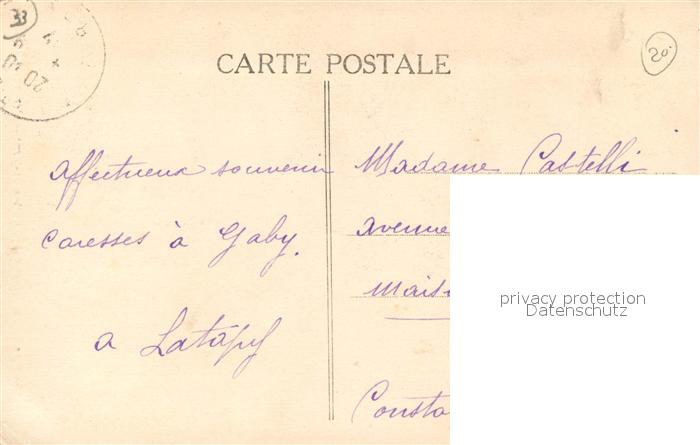 33
20
20
CARTE POSTALE
Affectueux souvenir
Caresses à Gaby.
a Latapy
Madame Castelli
Avenue
Mais
Consta
privacy protection
Datenschutz